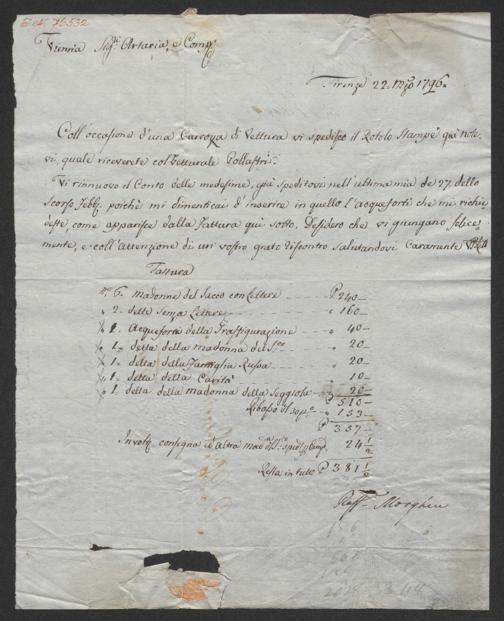 E.d.N. 76532
Vienna Sigri Artaria, e Compi
Firenze 22. Mgo 1796.
Coll'occasione d'una Carrozza di Vettura vi spedisco il Rotolo Stampe già note-
vi, quale riceverete col Vetturale Pollastri.
Vi rinnuovo il Conto delle medesime, già speditovi nell'ultima mia de 27. dello
Scorso Febbo. poichè mi dimenticai d'inserire in quello l'acqueforti che mi richie-
deste, come apparisce dalla Fattura quì sotto. Desidero che vi giungano felice-
mente, e coll'attenzione di un vostro grato riscontro salutandovi caramente
Fattura
No. 6. Madonne del Sacco con Lettere P 240
" 2. dette senza Lettere " 160
" 1. Acquaforte della Trasfigurazione " 40
" 1. detta della Madonna del Sco " 20
" 1. detta della Famiglia Russa " 20
" 1. detta della Carità 10
" 1. detta della Madonna della Seggiola 20
P 510
Ribasso il 30 p% " 153
P 357
24 1/2
Resta in tutto P 381 1/2
Raffo Morghen